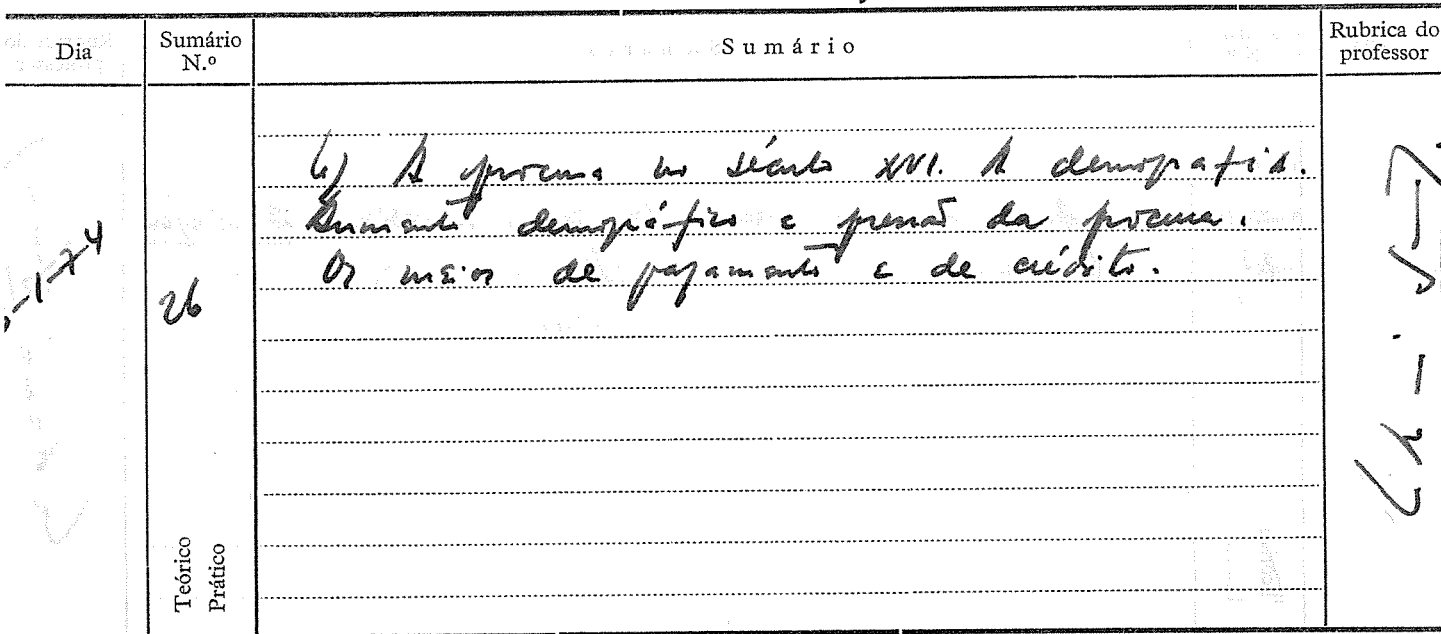 Dia
Sumário N.º
Sumário
Rubrica do professor
-1-74
26
b) A procura no século XVI. A demografia.
Aumento demográfico e pressão da procura.
Os meios de pagamento e de crédito.
Teórico
Prático